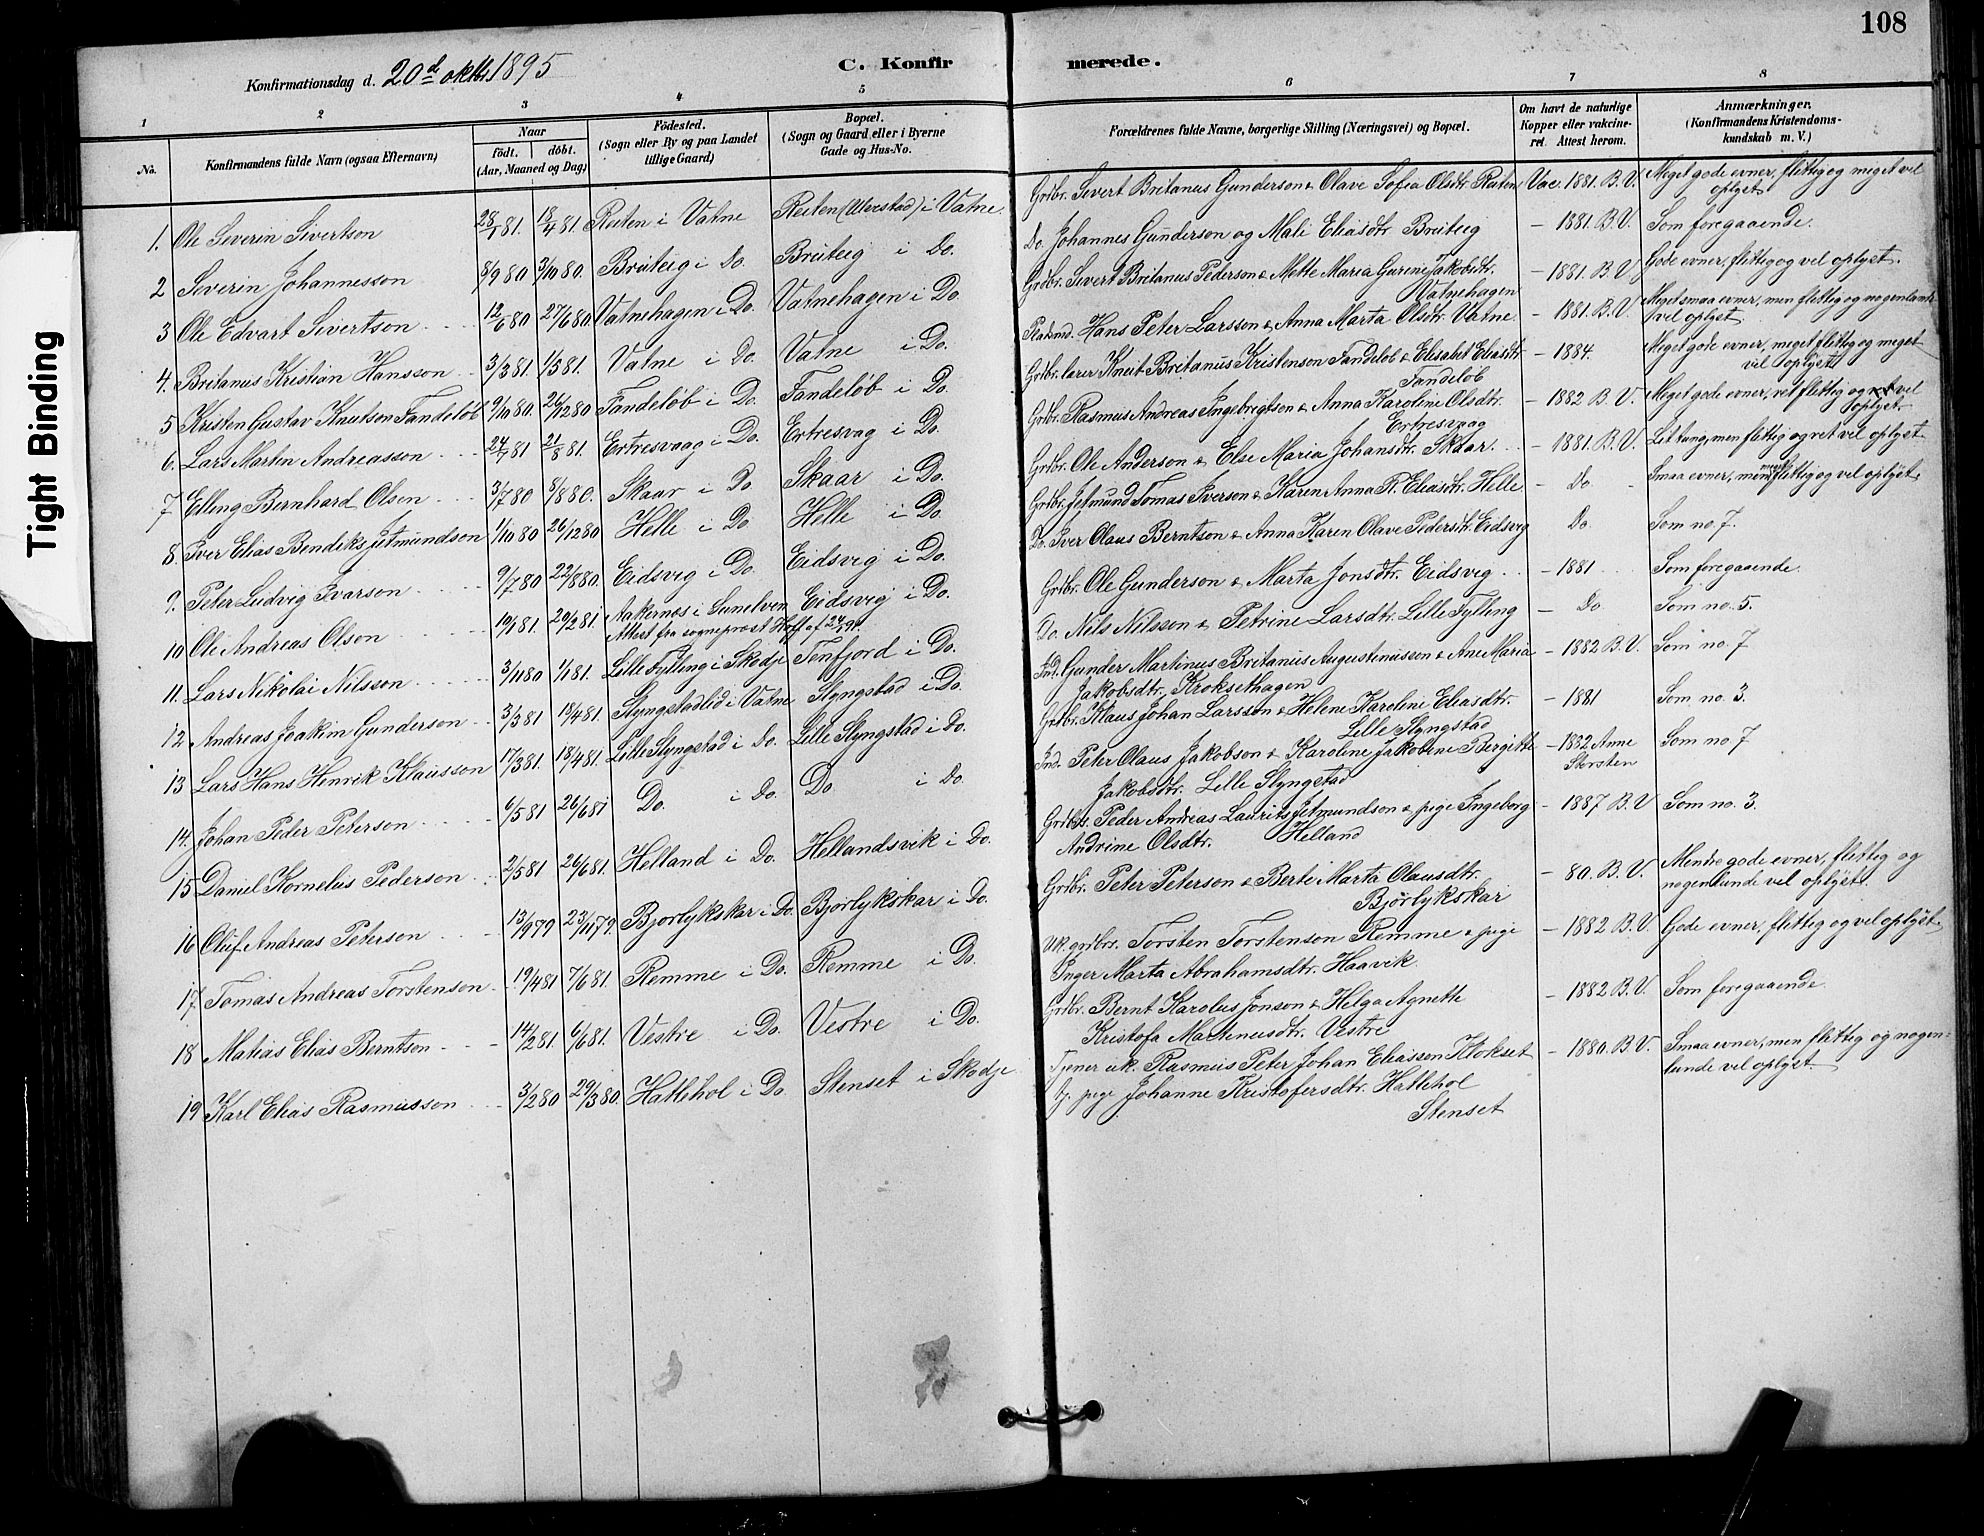 108
Konfirmationsdag d. 20de oktbr. 1895
C. Konfirmerede.
1 2 3 4 5 6 7 8
No. Konfirmandens fulde Navn (ogsaa Efternavn) Naar født. døbt. (Aar, Maaned og Dag) Födested. (Sogn eller By og paa Landet tillige Gaard) Bopæl. (Sogn og Gaard eller i Byerne Gade og Hus-No. Forældrenes fulde Navne, borgerlige Stilling (Næringsvei) og Bopæl. Om havt de naturlige Kopper eller vakcineret. Attest herom. Anmærkninger. (Konfirmandens Kristendomskundskab m. V.)
Tight Binding
1. Ole Severin Sivertson 28/1 81. 18/4 81. Reiten i Vatne Reiten (Ulvestad) i Vatne. Grdbr. Sivert Britanus Gunderson & Olave Sofia Olsdtr. Reiten Vac. 1881. B.V. Meget gode evner, flittig og meget vel oplyst
2 Severin Johannesson 8/9 80 3/10 80. Bruteig i Do. Bruteig i Do. Do. Johannes Gunderson og Mali Eliasdtr Breiteig – 1881. B.V. Som foregaaende.
3 Ole Edvart Sivertson 12/6 80 27/6 80 Vatnehagen i Do. Vatnehagen i Do. Grdbr. Sivert Britanus Pederson & Mette Maria Gurine Jakobsdtr. Vatnehagen – 1881. B.V. Gode evner, flittig og vel oplyst.
4. Britanus Kristian Hansson 3/3 81. 1/5 81. Vatne i Do. Vatne i Do. Pladsmd. Hans Peter Larsson & Anna Marta Olsdtr. Vatne – 1881. B.V. Meget smaa evner, men flittig og nogenlunde vel oplyst
5 Kristen Gustav Knutson Fandeløb 9/10 80. 26/12 80 Fandeløb i Do. Fandeløb i Do. Grdbr. lærer Knut Britanus Kristenson Fandeløb & Elisabet Eliasdtr Fandeløb – 1884. Meget gode evner, meget flittig og meget vel oplyst
6. Lars Martin Andreasson 24/7 81 21/8 81. Ertresvaag i Do. Ertresvag i Do. Grdbr. Rasmus Andreas Ingebregtson & Anna Karoline Olsdtr. Ertresvaag – 1882 B.V. Meget gode evner, ret flittig og ret vel oplyst.
7 Elling Bernhard Olsen 3/7 80 8/8 80. Skaar i Do Skaar i Do. Grdbr. Ole Anderson & Else Maria Johansdtr. Skaar. – 1881. B.V. Lit tung, men flittig og ret vel oplyst
8. Iver Elias Bendiks Jetmundson 1/10 80 26/12 80 Helle i Do Helle i Do Grdbr. Jetmund Tomas Iverson & Karen Anna K. Eliasdtr. Helle – Do Smaa evner, men meget flittig og vel oplyst
9. Peter Ludvig Ivarson 9/7 80 22/8 80. Eidsvig i Do. Eidsvig i Do. Do. Iver Olaus Berntson & Anna Karen Olave Pedersdtr. Eidsvig Do. Som no 7.
10 Ole Andreas Olson 10/1 81. 20/2 81. Aakernæs i Sunelven Attest fra sogneprest Hoff af Eidsvig i Do. Grdbr. Ole Gunderson & Marta Jonsdtr. Eidsvig – 1881 Som foregaaende.
11. Lars Nikolai Nilsson 3/11 80 1/1 81. Lille Fylling i Skodje Tenfjord i Do. Do. Nils Nilsson & Petrine Larsdtr. Lille Fylling – Do Som no. 5.
12 Andreas Joakim Gunderson 3/3 81 18/4 81. Slyngstadlid i Vatne Slyngstad i Do. Ind. Gunder Martinus Britanus Augustinusson & Ane Maria Jakobsdtr. Kroksethagen – 1882 B.V. Som no. 7
13 Lars Hans Henrik Klausson 17/3 81. 18/4 81. Lille Slyngstad i Do. Lille Slyngstad i Do. Grdbr. Klaus Johan Larsson & Helene Karoline Eliasdtr. Lille Slyngstad – 1881 Som no. 3.
14. Johan Peder Peterson 6/5 81 26/6 81 Do. i Do. Do i Do. Ind. Peter Olaus Jakobson & Karoline Jakobine Bergitte Jakobsdtr. Lille Slyngstad – 1882 Anne Storsten Som no 7
15 Daniel Kornelus Pederson 2/5 81 26/6 81. Helland i Do. Hellandsvik i Do. Grdbrs. Peder Andreas Laurits Jetmundson & pige Ingeborg Andrine Olsdtr. Helland – 1887 B.V Som no. 3.
16 Oluf Andreas Peterson 13/9 79 23/11 79. Bjorlykskar i Do. Bjorlykskar i Do. Grdbr. Peter Peterson & Berte Marta Olausdtr. Bjørlykskar – 80. B.V. Mendre gode evner, flittig og nogenlunde vel oplyst.
17. Tomas Andreas Torstenson 19/4 81 7/6 81. Remme i Do. Remme i Do. Uk. grdbrs. Torsten Torstenson Remme & pige Inger Marta Abrahamsdtr. Haavik. – 1882 B.V. Gode evner, flittig og vel oplyst
18 Matias Elias Berntson 14/2 81. 6/6 81. Vestre i Do. Vestre i Do. Grdbr. Bernt Karolus Jonson & Helga Agnethe Kristofa Martinusdtr. Vestre – 1882 B.V. Som foregaaende.
19 Karl Elias Rasmusson 3/2 80 29/3 80. Hatlehol i Do. Stenset i Skodje Tjener uk. Rasmus Peter Johan Eliassen Klokset & pige Johanne Kristofersdtr. Hatlehol Stenset – 1880. B.V. Smaa evner, men flittig og nogenlunde vel oplyst.